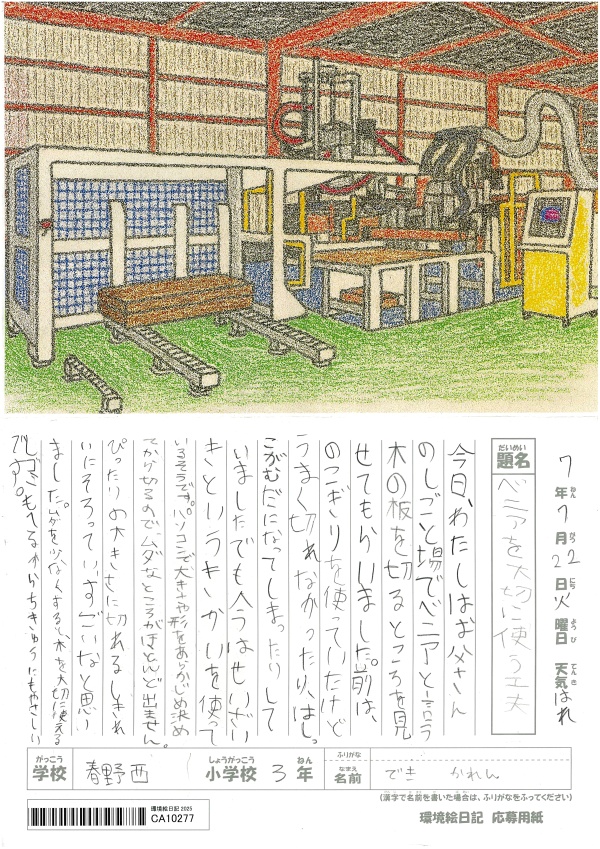 7年7月22日火曜日 天気はれ
題名 ベニアを大切に使う工夫
今日、わたしはお父さん
のしごと場でベニアと言う
木の板を切るところを見
せてもらいました。前は、
のこぎりを使っていたけど
うまく切れなかったり、はしっ
こがむだになってしまったりして
いましたでも今はせいざい
きというきかいを使って
いるそうです。パソコンで大きさや形をあらかじめ決め
てから切るので、ムダなところがほとんど出ません。
ぴったりの大きさに切れるしきれ
いにそろっていてすごいなと思い
ました。ムダを少なくすると、木を大切に使える
しゴミもへるからちきゅうにもやさしい
です。
がっこう
学校 春野西 小学校 3年
しょうがっこう ねん
ふりがな
なまえ
名前 でき かれん
(漢字で名前を書いた場合は、ふりがなをふってください)
環境絵日記 2025
CA10277
環境絵日記 応募用紙